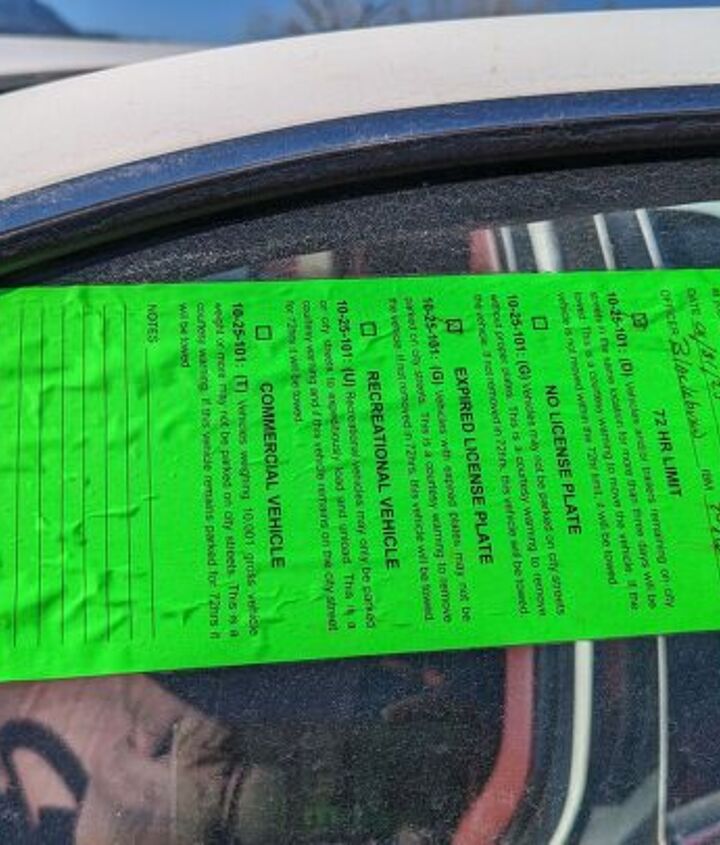 DATE
OFFICER
72 HR LIMIT
10-25-101: (D) Vehicles and/or trailers remaining on city
streets in the same location for more than three days will be
towed. This is a courtesy warning to move the vehicle. If the
vehicle is not moved within the 72hr limit, it will be towed
NO LICENSE PLATE
10-25-101: (G) Vehicles may not be parked on city streets
without proper plates. This is a courtesy warning to remove
the vehicle. If not removed in 72hrs, this vehicle will be towed.
EXPIRED LICENSE PLATE
10-25-101: (G) Vehicles with expired plates, may not be
parked on city streets. This is a courtesy warning to remove
the vehicle. If not removed in 72hrs, this vehicle will be towed
RECREATIONAL VEHICLE
10-25-101: (U) Recreational vehicles may only be parked
on city streets to expeditiously load and unload. This is a
courtesy warning and if this vehicle remains on the city street
for 72hrs it will be towed.
COMMERCIAL VEHICLE
10-25-101: (T) Vehicles weighing 10,001 gross vehicle
weight or more may not be parked on city streets. This is a
courtesy warning. If this vehicle remains parked for 72hrs it
will be towed
NOTES